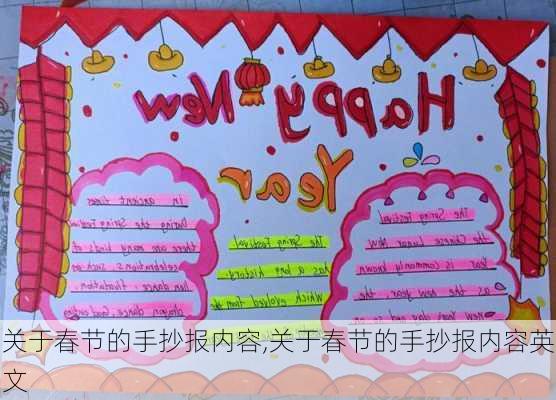 Happy New
Year
The Spring Festival
the Chinese Lunar New
Year is commonly known
as the new year, the
New Year day and so on
The Spring Festival
has a long history
Which evolved from
In ancient times
During the Spring Festival
there are many kinds of
celebrations such as
lion dance,
dragon dance,
关于春节的手抄报内容,关于春节的手抄报内容英
文